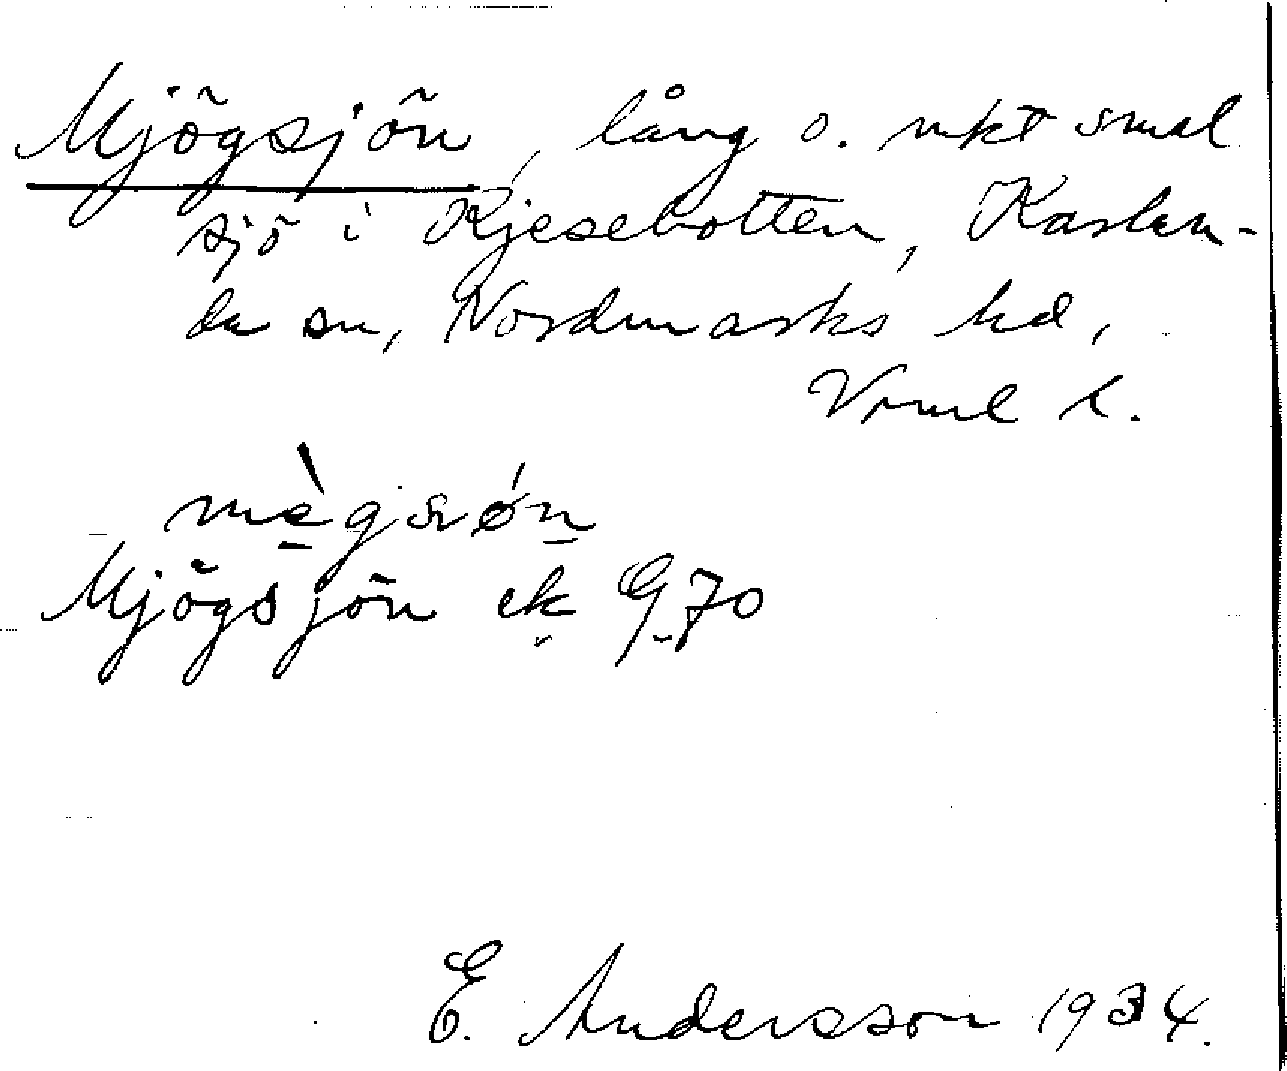 Mjögsjön, lång o. mkt smal
sjö i Kjesebotten, Karlan-
da sn, Nordmarks hd,
Vrml l.
Mjögsjön ek G 70
E. Andersson 1934.